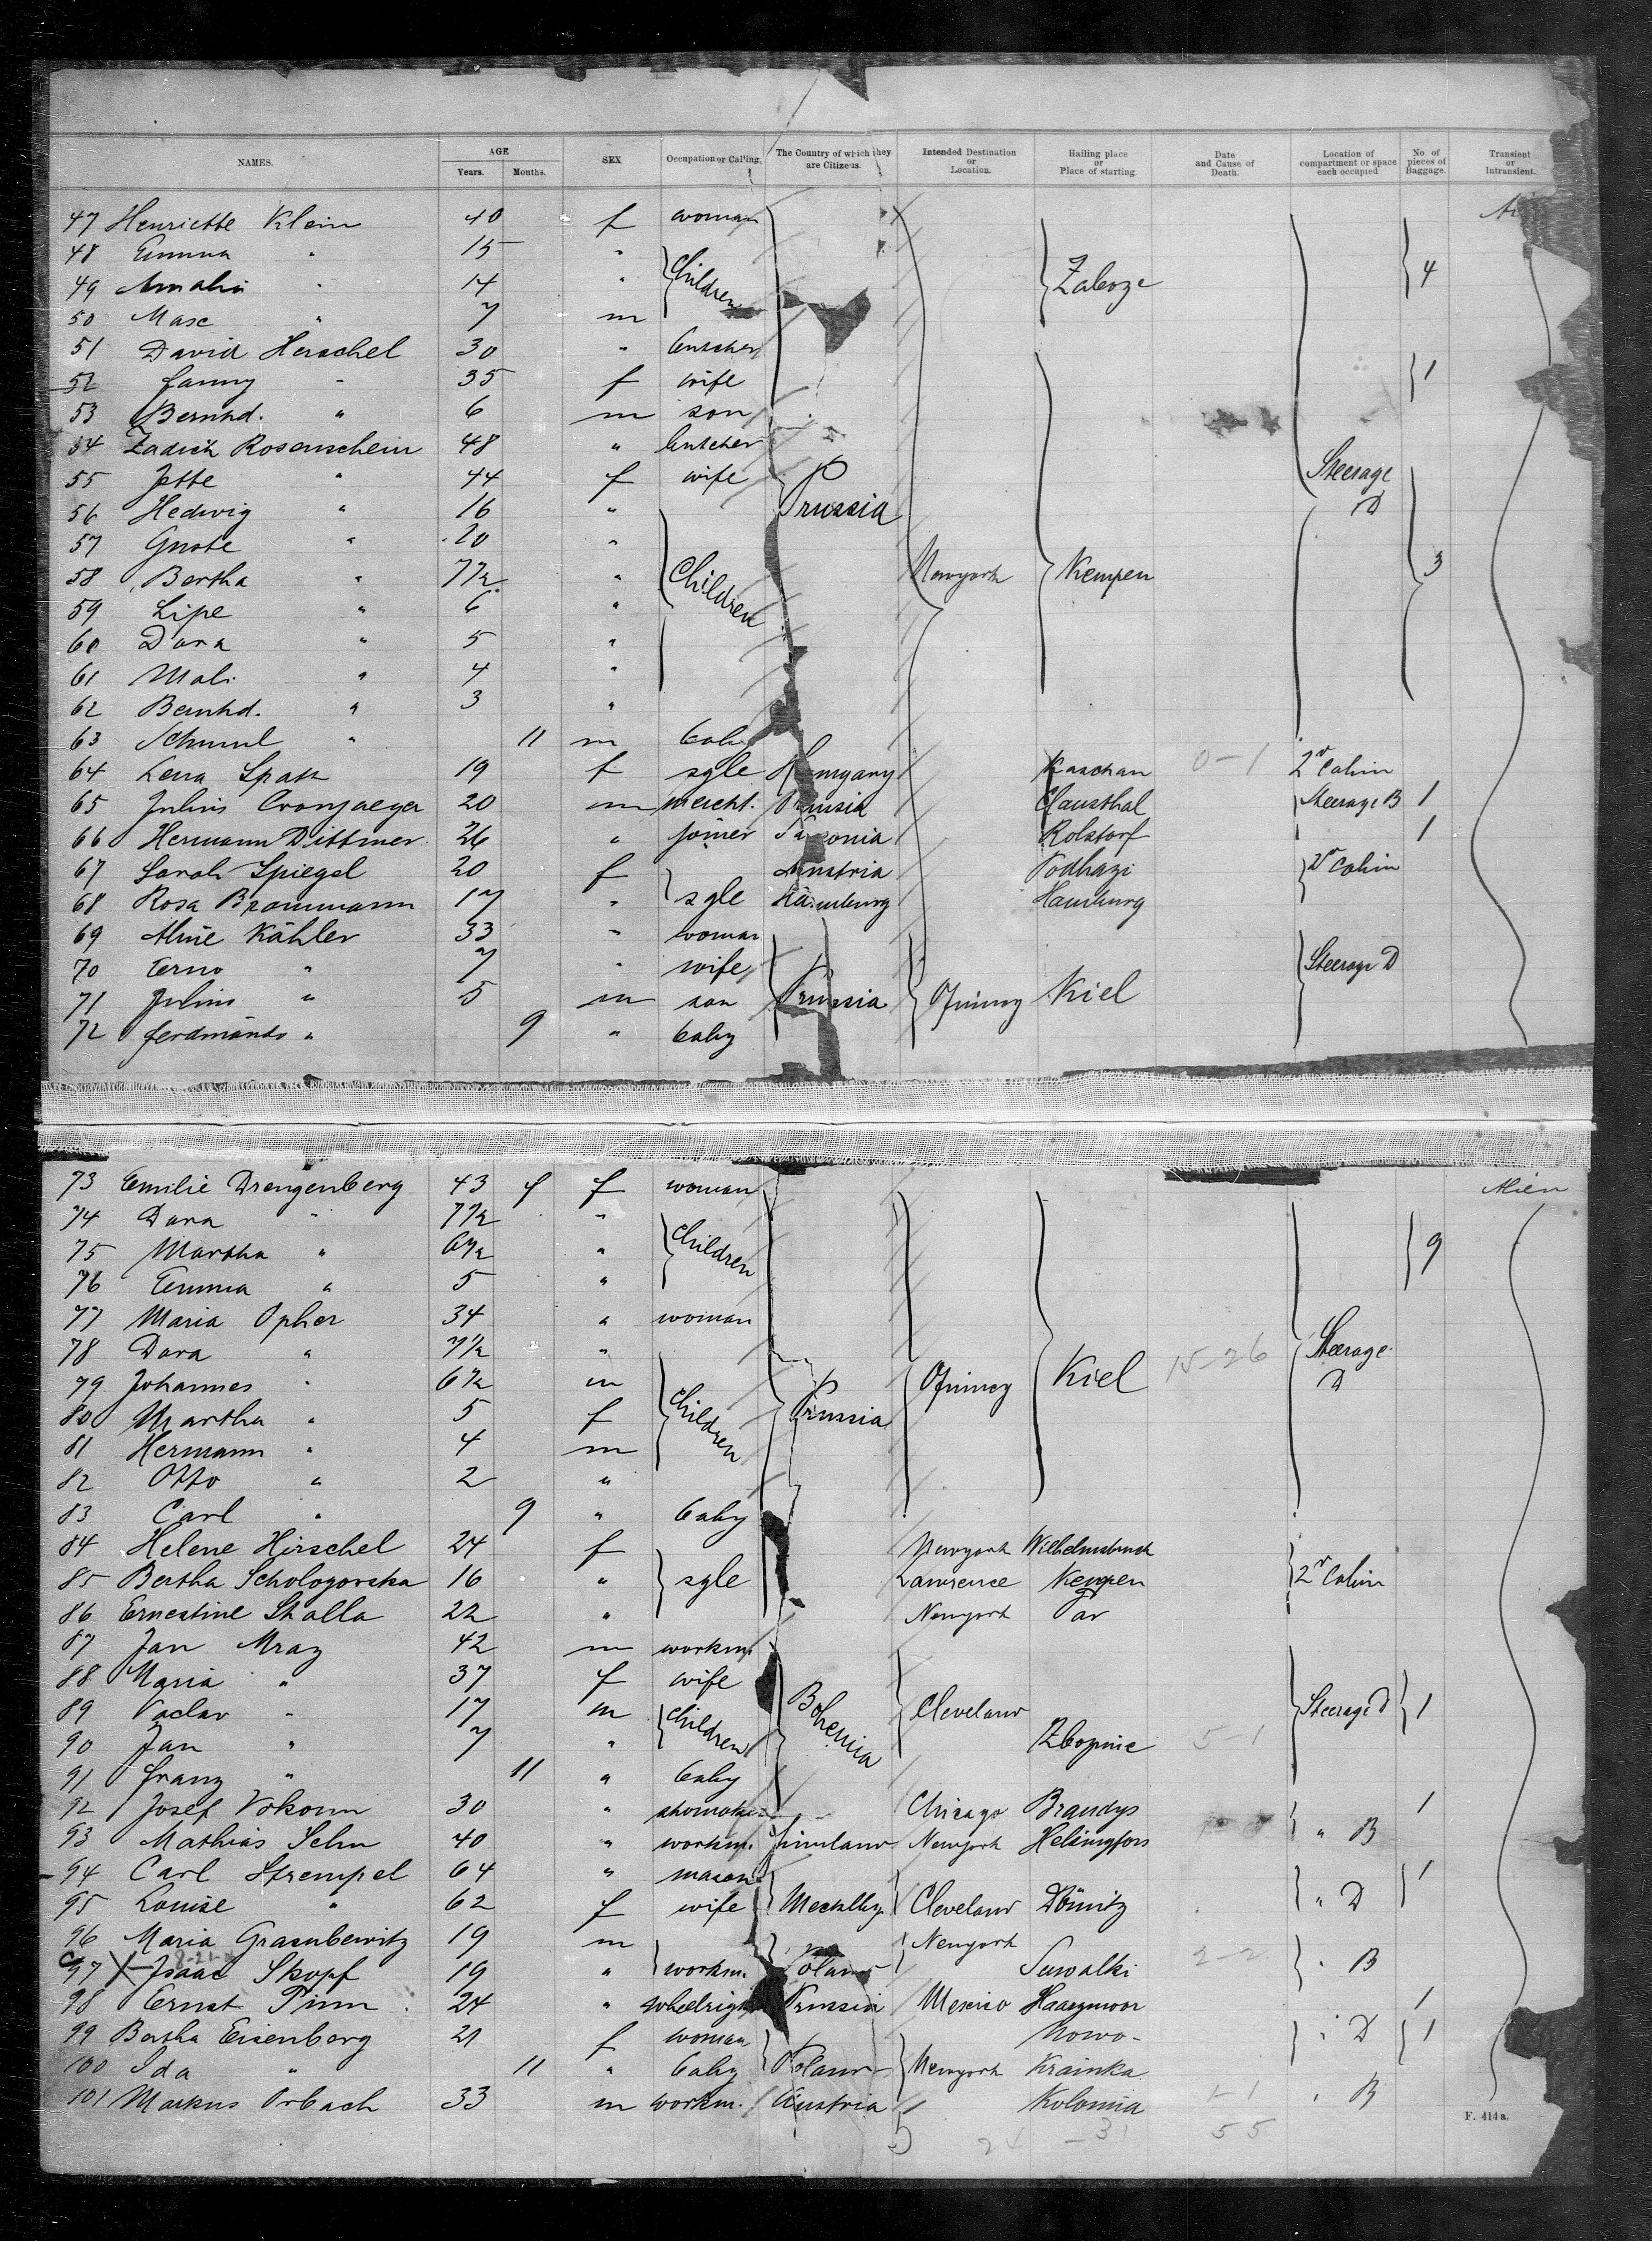 NAMES. AGE Years. Months. SEX Occupation or Calling. The Country of which they are Citizens. Intended Destination or Location. Hailing place or Place of starting. Date and Cause of Death. Location of compartment or space each occupied No. of pieces of Baggage. Transient or Intransient.
47 Henriette Klein 40 f woman
48 Emma " 15 "
49 Amalia " 14 " Children Zaborze 4
50 Max " 7 m
51 David Herschel 30 " butcher
52 Fanny " 35 f wife 1
53 Bernhd. " 6 m son
54 Zadick Rosenschein 48 " butcher
55 Jette " 44 f wife Prussia Steerage D
56 Hedwig " 16 "
57 Guste " 20 "
58 Bertha " 7½ " Children Newyork Kempen 3
59 Lipe " 6 "
60 Dora " 5 "
61 Mali " 4 "
62 Bernhd. " 3 "
63 Schmul " 11 m baby
64 Lena Spatz 19 f sgle Hungary Kaschau 0-1 2d Cabin
65 Julius Cronjaeger 20 m mercht. Prussia Clausthal Steerage B 1
66 Hermann Dittmer 26 " joiner Saxonia Rolstorf " 1
67 Sarah Spiegel 20 f Austria Podhazi 2d Cabin
68 Rosa Brommann 17 " sgle Hamburg Hamburg
69 Aline Kähler 33 " woman
70 Erno " 7 " wife Steerage D
71 Julius " 5 m son Prussia Quincy Kiel
72 ferdinando " 9 " baby
73 Emilie Drengenberg 43 f f woman Alien
74 Dora " 7½ "
75 Martha " 6½ " Children 9
76 Emma " 5 "
77 Maria Opher 34 " woman
78 Dora " 7½ " Steerage D
79 Johannes " 6½ m Quincy Kiel 15-26
80 Martha " 5 f Children Prussia
81 Hermann " 4 m
82 Otto " 2 "
83 Carl " 9 " baby
84 Helene Hirschel 24 f Newyork Wilhelmsbruck
85 Bertha Schologorska 16 " sgle Lawrence Kempen 2d Cabin
86 Ernestine Skalla 22 " Newyork
87 Jan Mraz 42 m workm.
88 Maria " 37 f wife
89 Vaclav " 17 m Children Bohemia Cleveland Steerage D 1
90 Jan " 7 " Zbopinic 5-1
91 Franz " 11 " baby
92 Josef Vokoun 30 " shomaker Chicago Brandys 1
93 Mathias Sehn 40 " workm. Finnland Newyork Helsingfors " B
94 Carl Strempel 64 " mason 1
95 Louise " 62 f wife Mecklbg. Cleveland Dömitz " D
96 Maria Grasubewitz 19 m Newyork
97 X Isaac Skopf 19 " workm. Poland Suwalki 2-2 " B
98 Ernst Pinn 24 " wheelright Prussia Mexico Haarmoor 1
99 Bertha Eisenberg 21 f woman Nowo- " D 1
100 Ida " 11 " baby Poland Newyork Krainka
101 Markus Orbach 33 m workm. Austria Kolomia 1-1 " B
5 24 -31 55
F. 414 a.